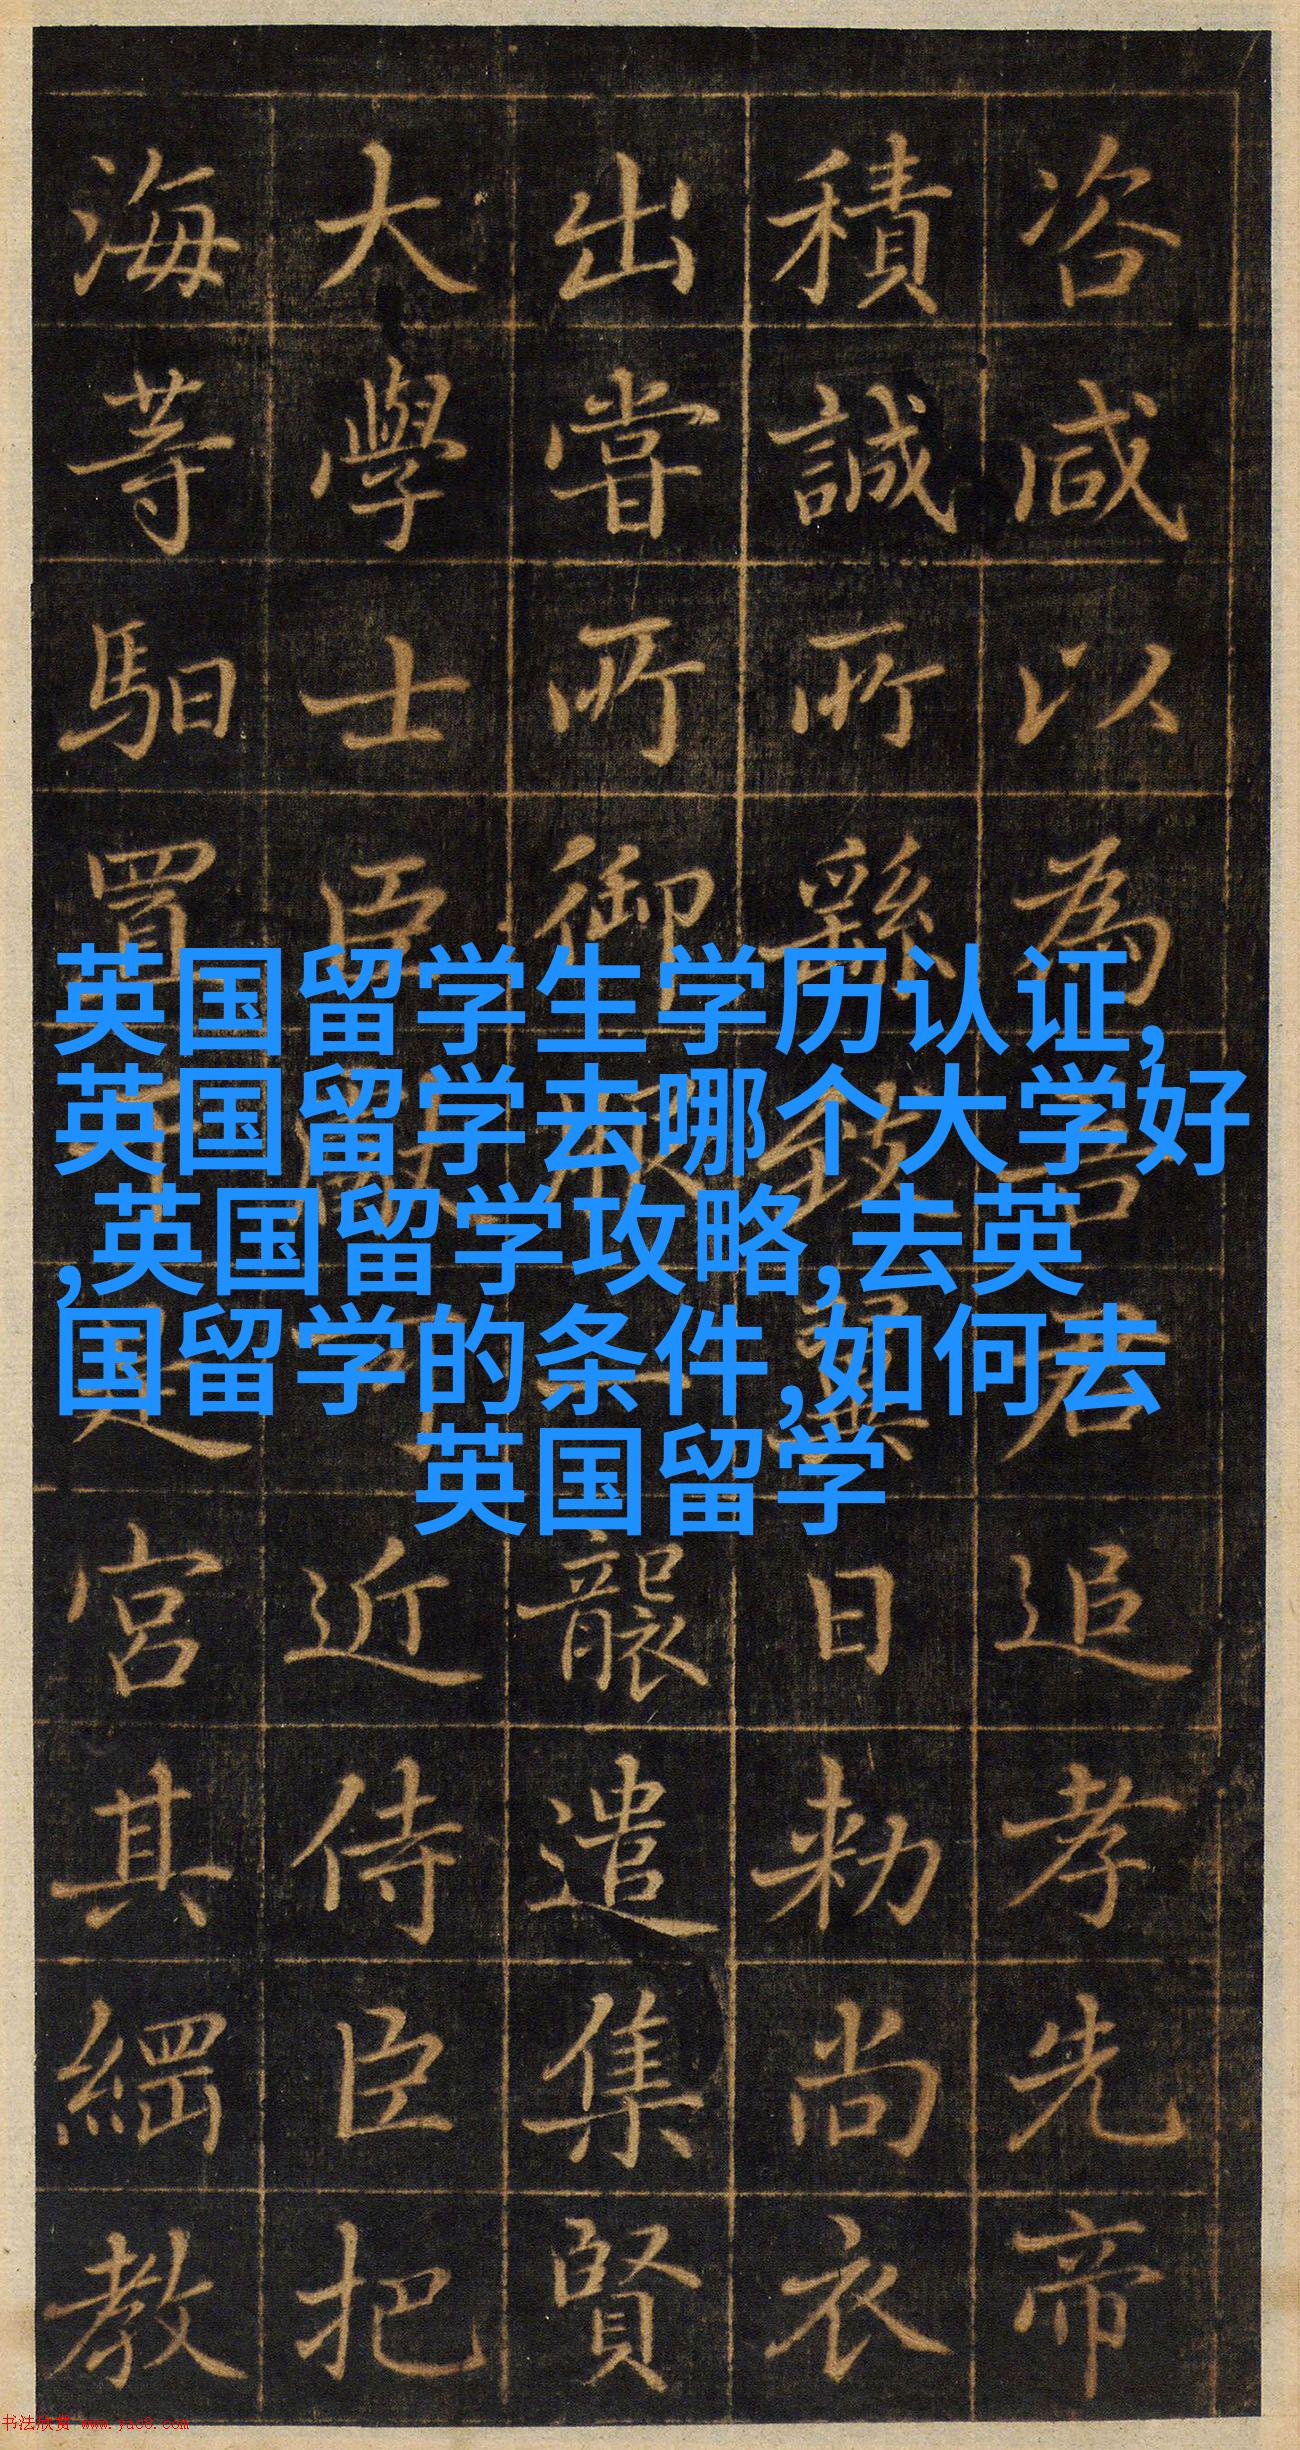 咨咸以為吾君追孝先帝
積誠所繇致日勑尚衣
出嘗所御服一襲遣集賢
大學士臣近侍臣把
海等馹置宮其綱教
英国留学生学历认证,
英国留学去哪个大学好
,英国留学攻略,去英
国留学的条件,如何去
英国留学
书法欣赏 www.yac8.com